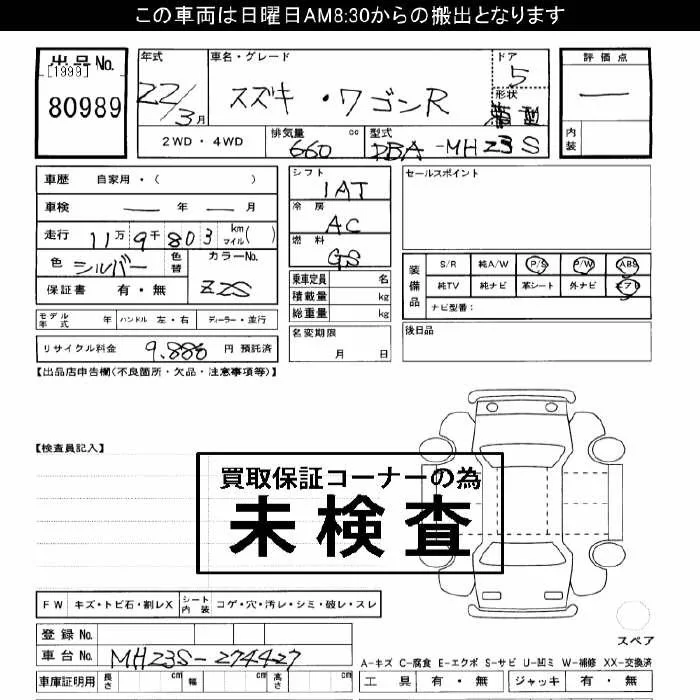 この車両は日曜日AM8:30からの搬出となります
出品No. 年式 車名・グレード ドア 評価点
[1999] 22/3月 スズキ・ワゴンR 5
80989 形状
2WD・4WD 排気量 660 cc 型式 DBA-MH23S 内装
車歴 自家用・( ) シフト 1AT セールスポイント
車検 ― 年 ― 月 冷房 AC
走行 11万9千803 km マイル( ) 燃料 GS
色 シルバー 色替 カラーNo. Z2S
保証書 有・無
乗車定員 名
積載量 kg
総重量 kg
装備品 S/R 純A/W P/S P/W ABS
純TV 純ナビ 革シート 外ナビ エアB
ナビ型番:
モデル年式 年 ハンドル 左・右 ディーラー・並行 名変期限 月 日 後日品
リサイクル料金 9,880 円 預託済
【出品店申告欄(不良箇所・欠品・注意事項等)】
【検査員記入】
買取保証コーナーの為
未検査
FW キズ・トビ石・割レX シート内装 コゲ・穴・汚レ・シミ・破レ・スレ
スペア
登録No.
車台No. MH23S-274427
A-キズ C-腐食 E-エクボ S-サビ U-凹ミ W-補修 XX-交換済
車庫証明用 長さ cm 幅 cm 高さ cm 工具 有・無 ジャッキ 有・無